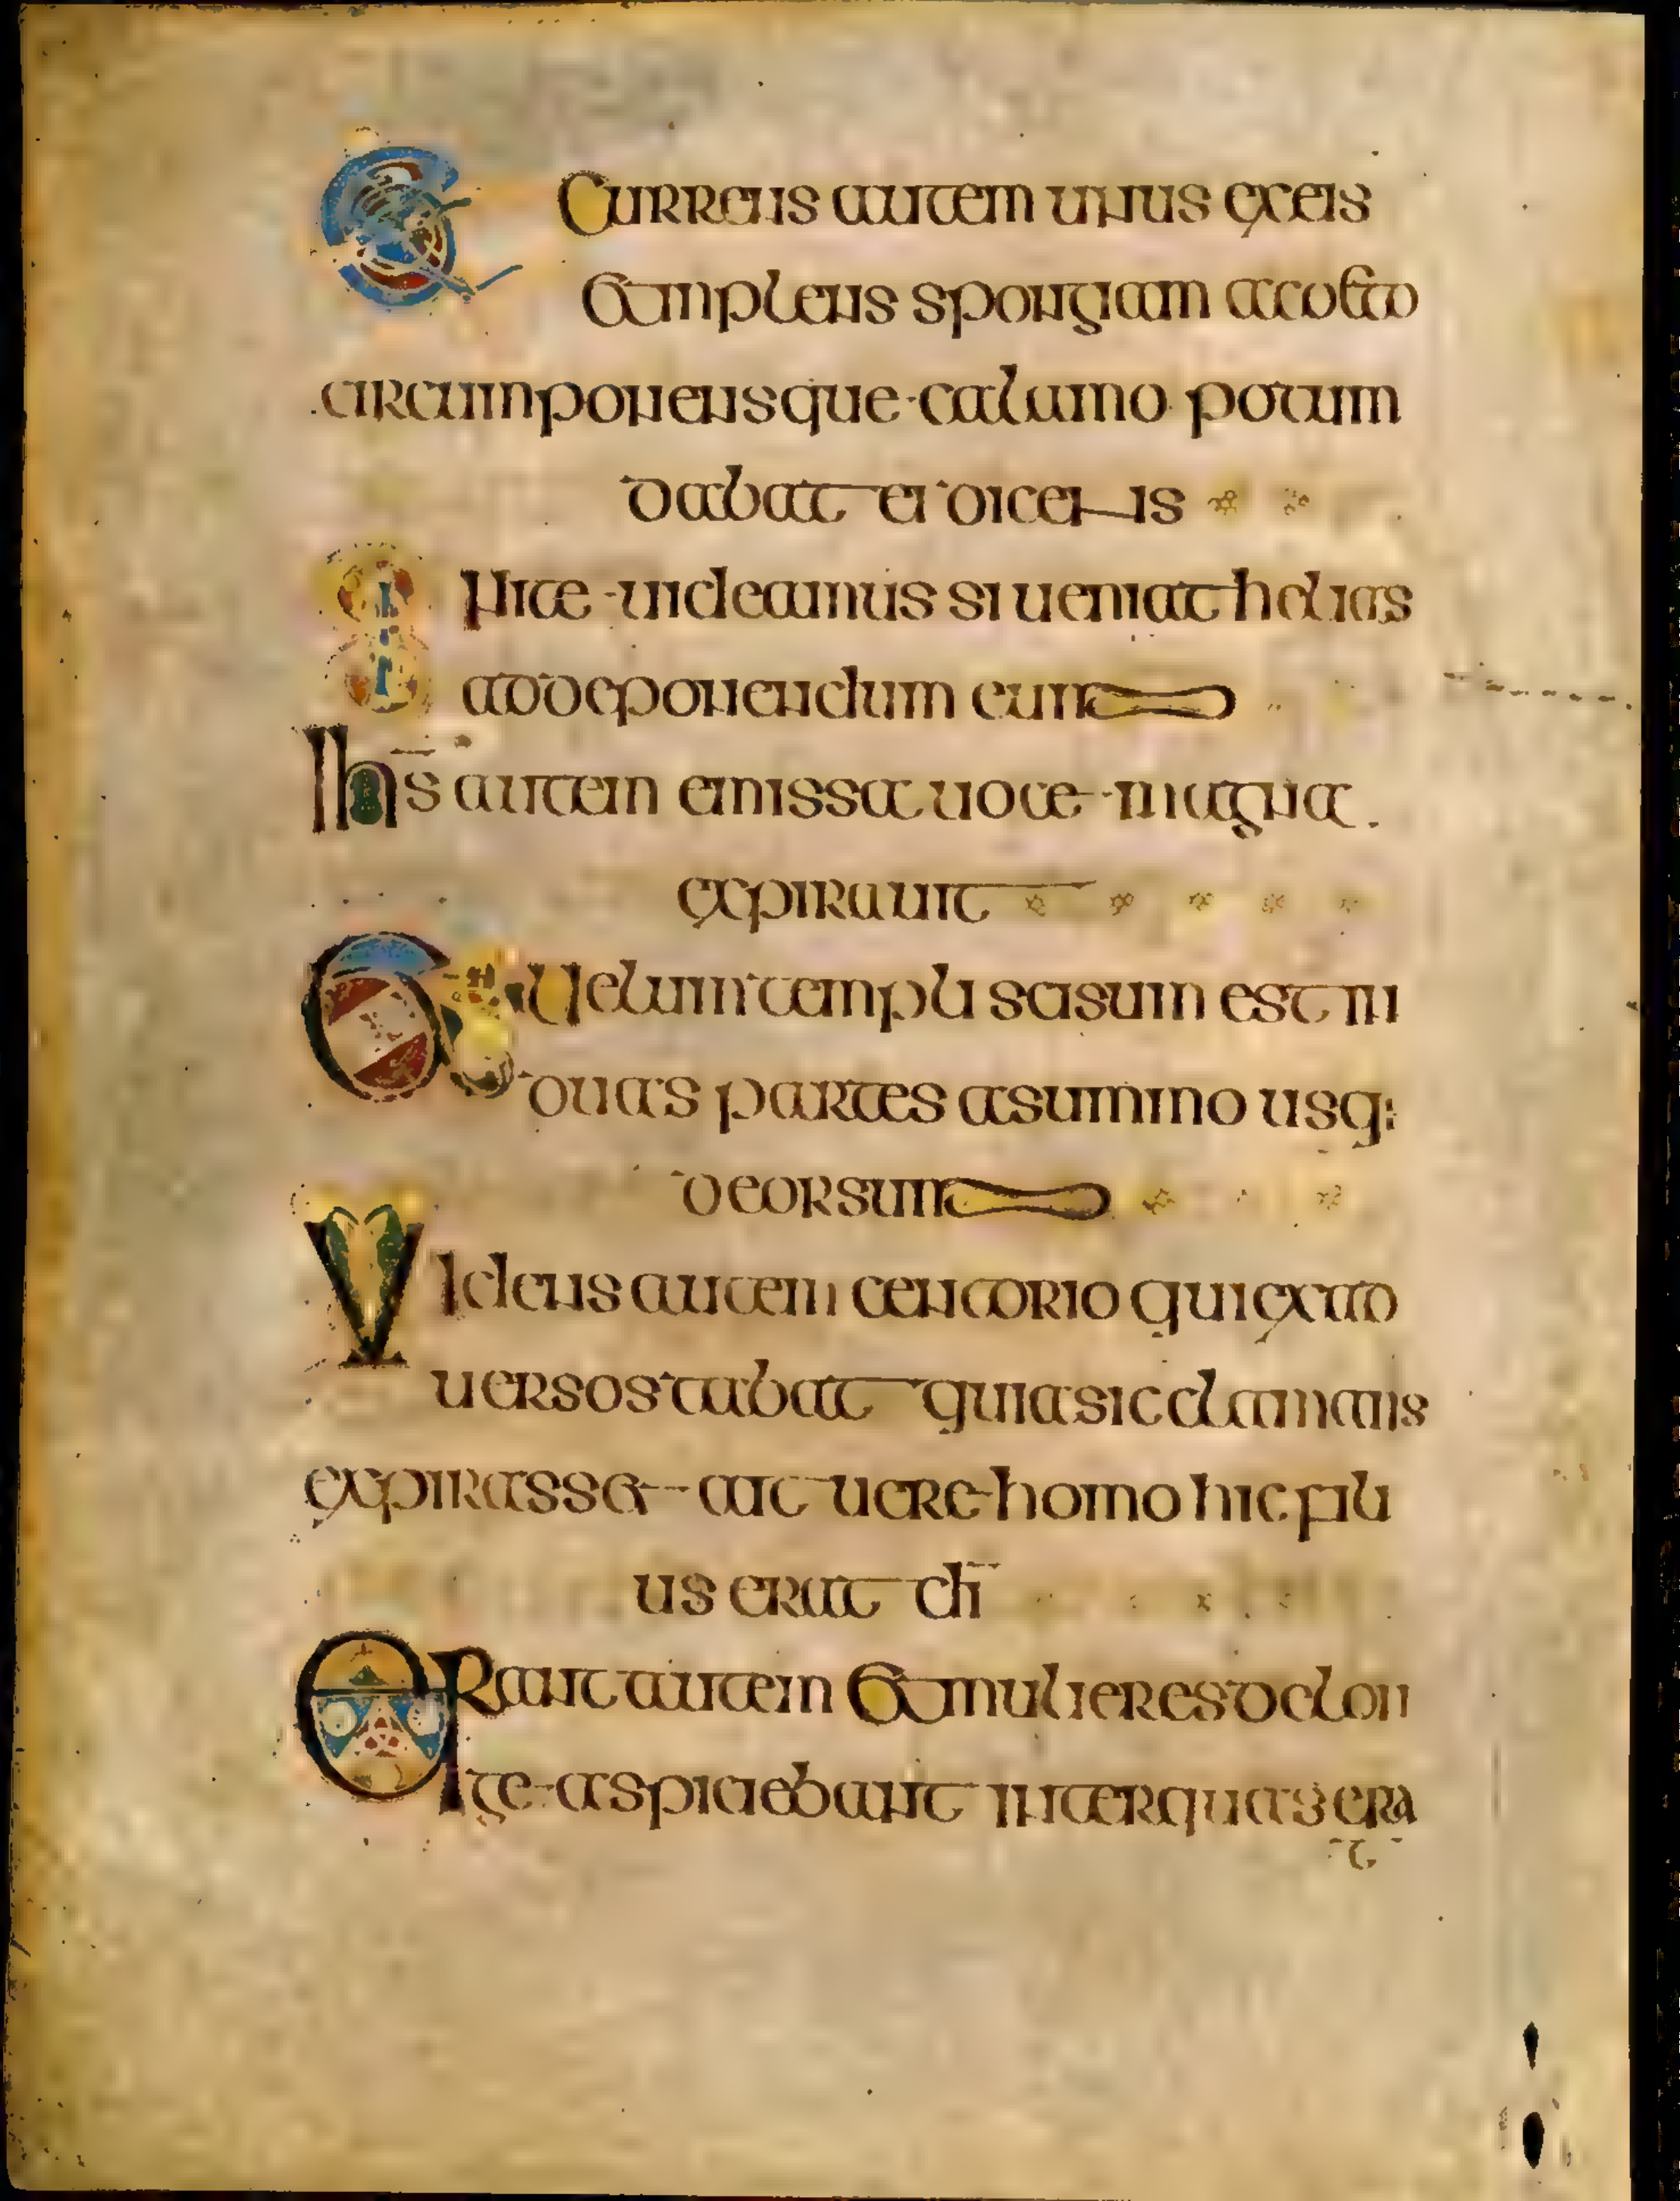 Currens autem unus exeis
et implens spongiam aceto
circumponensque calamo potum
dabat ei dicens
sinite uideamus si ueniat helias
addeponendum eum
Ihs autem emissa uoce magna
expirauit
Et uelum templi scisum est in
duas partes asummo usq:
deorsum
Videns autem centorio qui exad
uerso stabat quia sic clamans
expirasset ait uere homo hic fili
us erat di
Erant autem et mulieres delon
ge aspiciebant inter quas era
t